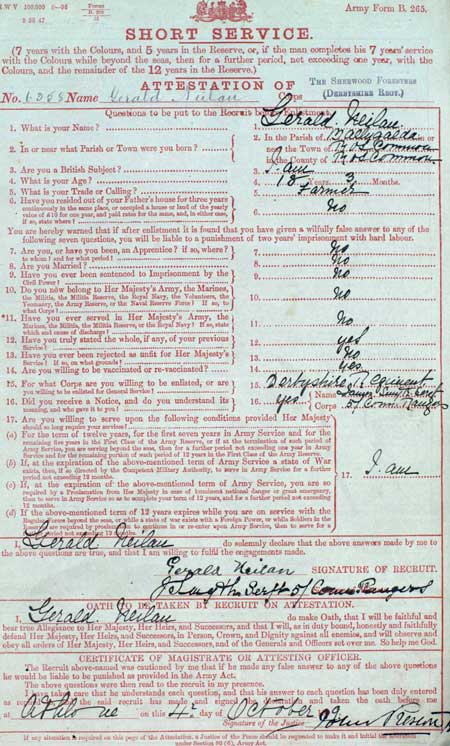 Army Form B. 265.
SHORT SERVICE.
(7 years with the Colours, and 5 years in the Reserve, or, if the man completes his 7 years' service
with the Colours while beyond the seas, then for a further period, not exceeding one year, with the
Colours, and the remainder of the 12 years in the Reserve.)
ATTESTATION OF
No. Name Gerald Neilan Corps THE SHERWOOD FORESTERS (DERBYSHIRE REGT.)
Questions to be put to the Recruit before Enlistment.
1. What is your Name? 1. Gerald Neilan
2. In or near what Parish or Town were you born? 2. In the Parish of near
the Town of Roscommon
in the County of Roscommon
3. Are you a British Subject? 3. I am
4. What is your Age? 4. 18 Years 3 Months.
5. What is your Trade or Calling? 5. Farmer
6. Have you resided out of your Father's house for three years
continuously in the same place, or occupied a house or land of the yearly
value of £10 for one year, and paid rates for the same, and, in either case,
if so, state where? 6. No
You are hereby warned that if after enlistment it is found that you have given a wilfully false answer to any of the
following seven questions, you will be liable to a punishment of two years' imprisonment with hard labour.
7. Are you, or have you been, an Apprentice? if so, where?
to whom? and for what period? 7. No
8. Are you Married? 8. No
9. Have you ever been sentenced to Imprisonment by the
Civil Power? 9. No
10. Do you now belong to Her Majesty's Army, the Marines,
the Militia, the Militia Reserve, the Royal Navy, the Volunteers, the
Yeomanry, the Army Reserve, or the Naval Reserve Force? If so, to
what Corps? 10. No
*11. Have you ever served in Her Majesty's Army, the
Marines, the Militia, the Militia Reserve, or the Royal Navy? If so, state
which and cause of discharge? 11. No
12. Have you truly stated the whole, if any, of your previous
Service? 12. yes
13. Have you ever been rejected as unfit for Her Majesty's
Service? If so, on what grounds? 13. No
14. Are you willing to be vaccinated or re-vaccinated? 14. yes
15. For what Corps are you willing to be enlisted, or are
you willing to be enlisted for General Service? 15. Derbyshire Regiment
16. Did you receive a Notice, and do you understand its
meaning, and who gave it to you? 16. yes Name
Corps 5/ Conn. Rangers
17. Are you willing to serve upon the following conditions provided Her Majesty
should so long require your services? 17. I am
(a) For the term of twelve years, for the first seven years in Army Service and for the
remaining five years in the First Class of the Army Reserve, or if at the termination of such period of
Army Service, you are serving beyond the seas, then for a further period not exceeding one year in Army
Service and for the remaining portion of such period of 12 years in the First Class of the Army Reserve.
(b) If, at the expiration of the above-mentioned term of Army Service a state of War
exists, then, if so directed by the Competent Military Authority, to serve in Army Service for a further
period not exceeding 12 months.
(c) If, at the expiration of the above-mentioned term of Army Service, you are so
required by a Proclamation from Her Majesty in case of imminent national danger or great emergency,
then to serve in Army Service so as to complete your term of 12 years, and for a further period not exceeding
12 months.
(d) If the above-mentioned term of 12 years expires while you are on service with the
Regular Forces beyond the seas, or while a state of war exists with a Foreign Power, or while Soldiers in the
Reserve are required by proclamation to continue in or re-enter upon Army Service, then to serve for a
further period not exceeding 12 months.
I, Gerald Neilan do solemnly declare that the above answers made by me to
the above questions are true, and that I am willing to fulfil the engagements made.
Gerald Neilan SIGNATURE OF RECRUIT.
5/ Conn. Rangers
OATH TO BE TAKEN BY RECRUIT ON ATTESTATION.
I, Gerald Neilan do make Oath, that I will be faithful and
bear true Allegiance to Her Majesty, Her Heirs, and Successors, and that I will, as in duty bound, honestly and faithfully
defend Her Majesty, Her Heirs, and Successors, in Person, Crown, and Dignity against all enemies, and will observe and
obey all orders of Her Majesty, Her Heirs, and Successors, and of the Generals and Officers set over me. So help me God.
CERTIFICATE OF MAGISTRATE OR ATTESTING OFFICER.
The Recruit above-named was cautioned by me that if he made any false answer to any of the above questions
he would be liable to be punished as provided in the Army Act.
The above questions were then read to the recruit in my presence.
I have taken care that he understands each question, and that his answer to each question has been duly entered
as replied to, and the said recruit has made and signed the declaration and taken the oath before me
at Athlone on this 4 day October
Signature of the Justice John Preston
If any alteration is required on this page of the Attestation, a Justice of the Peace should be requested to make it and initial the alteration
under Section 80 (6), Army Act.